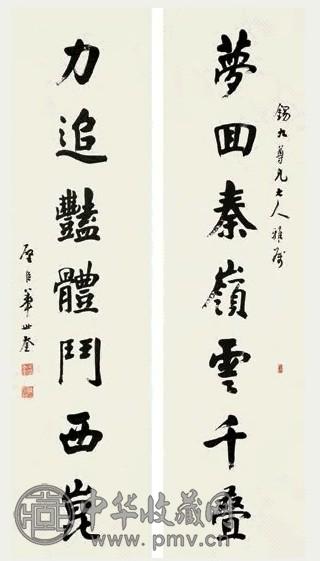 錫九尊兄大人雅屬
夢囬秦嶺雲千疊
力追豔體鬥西崑
臣華世奎
中华收藏网
www.pmv.cn